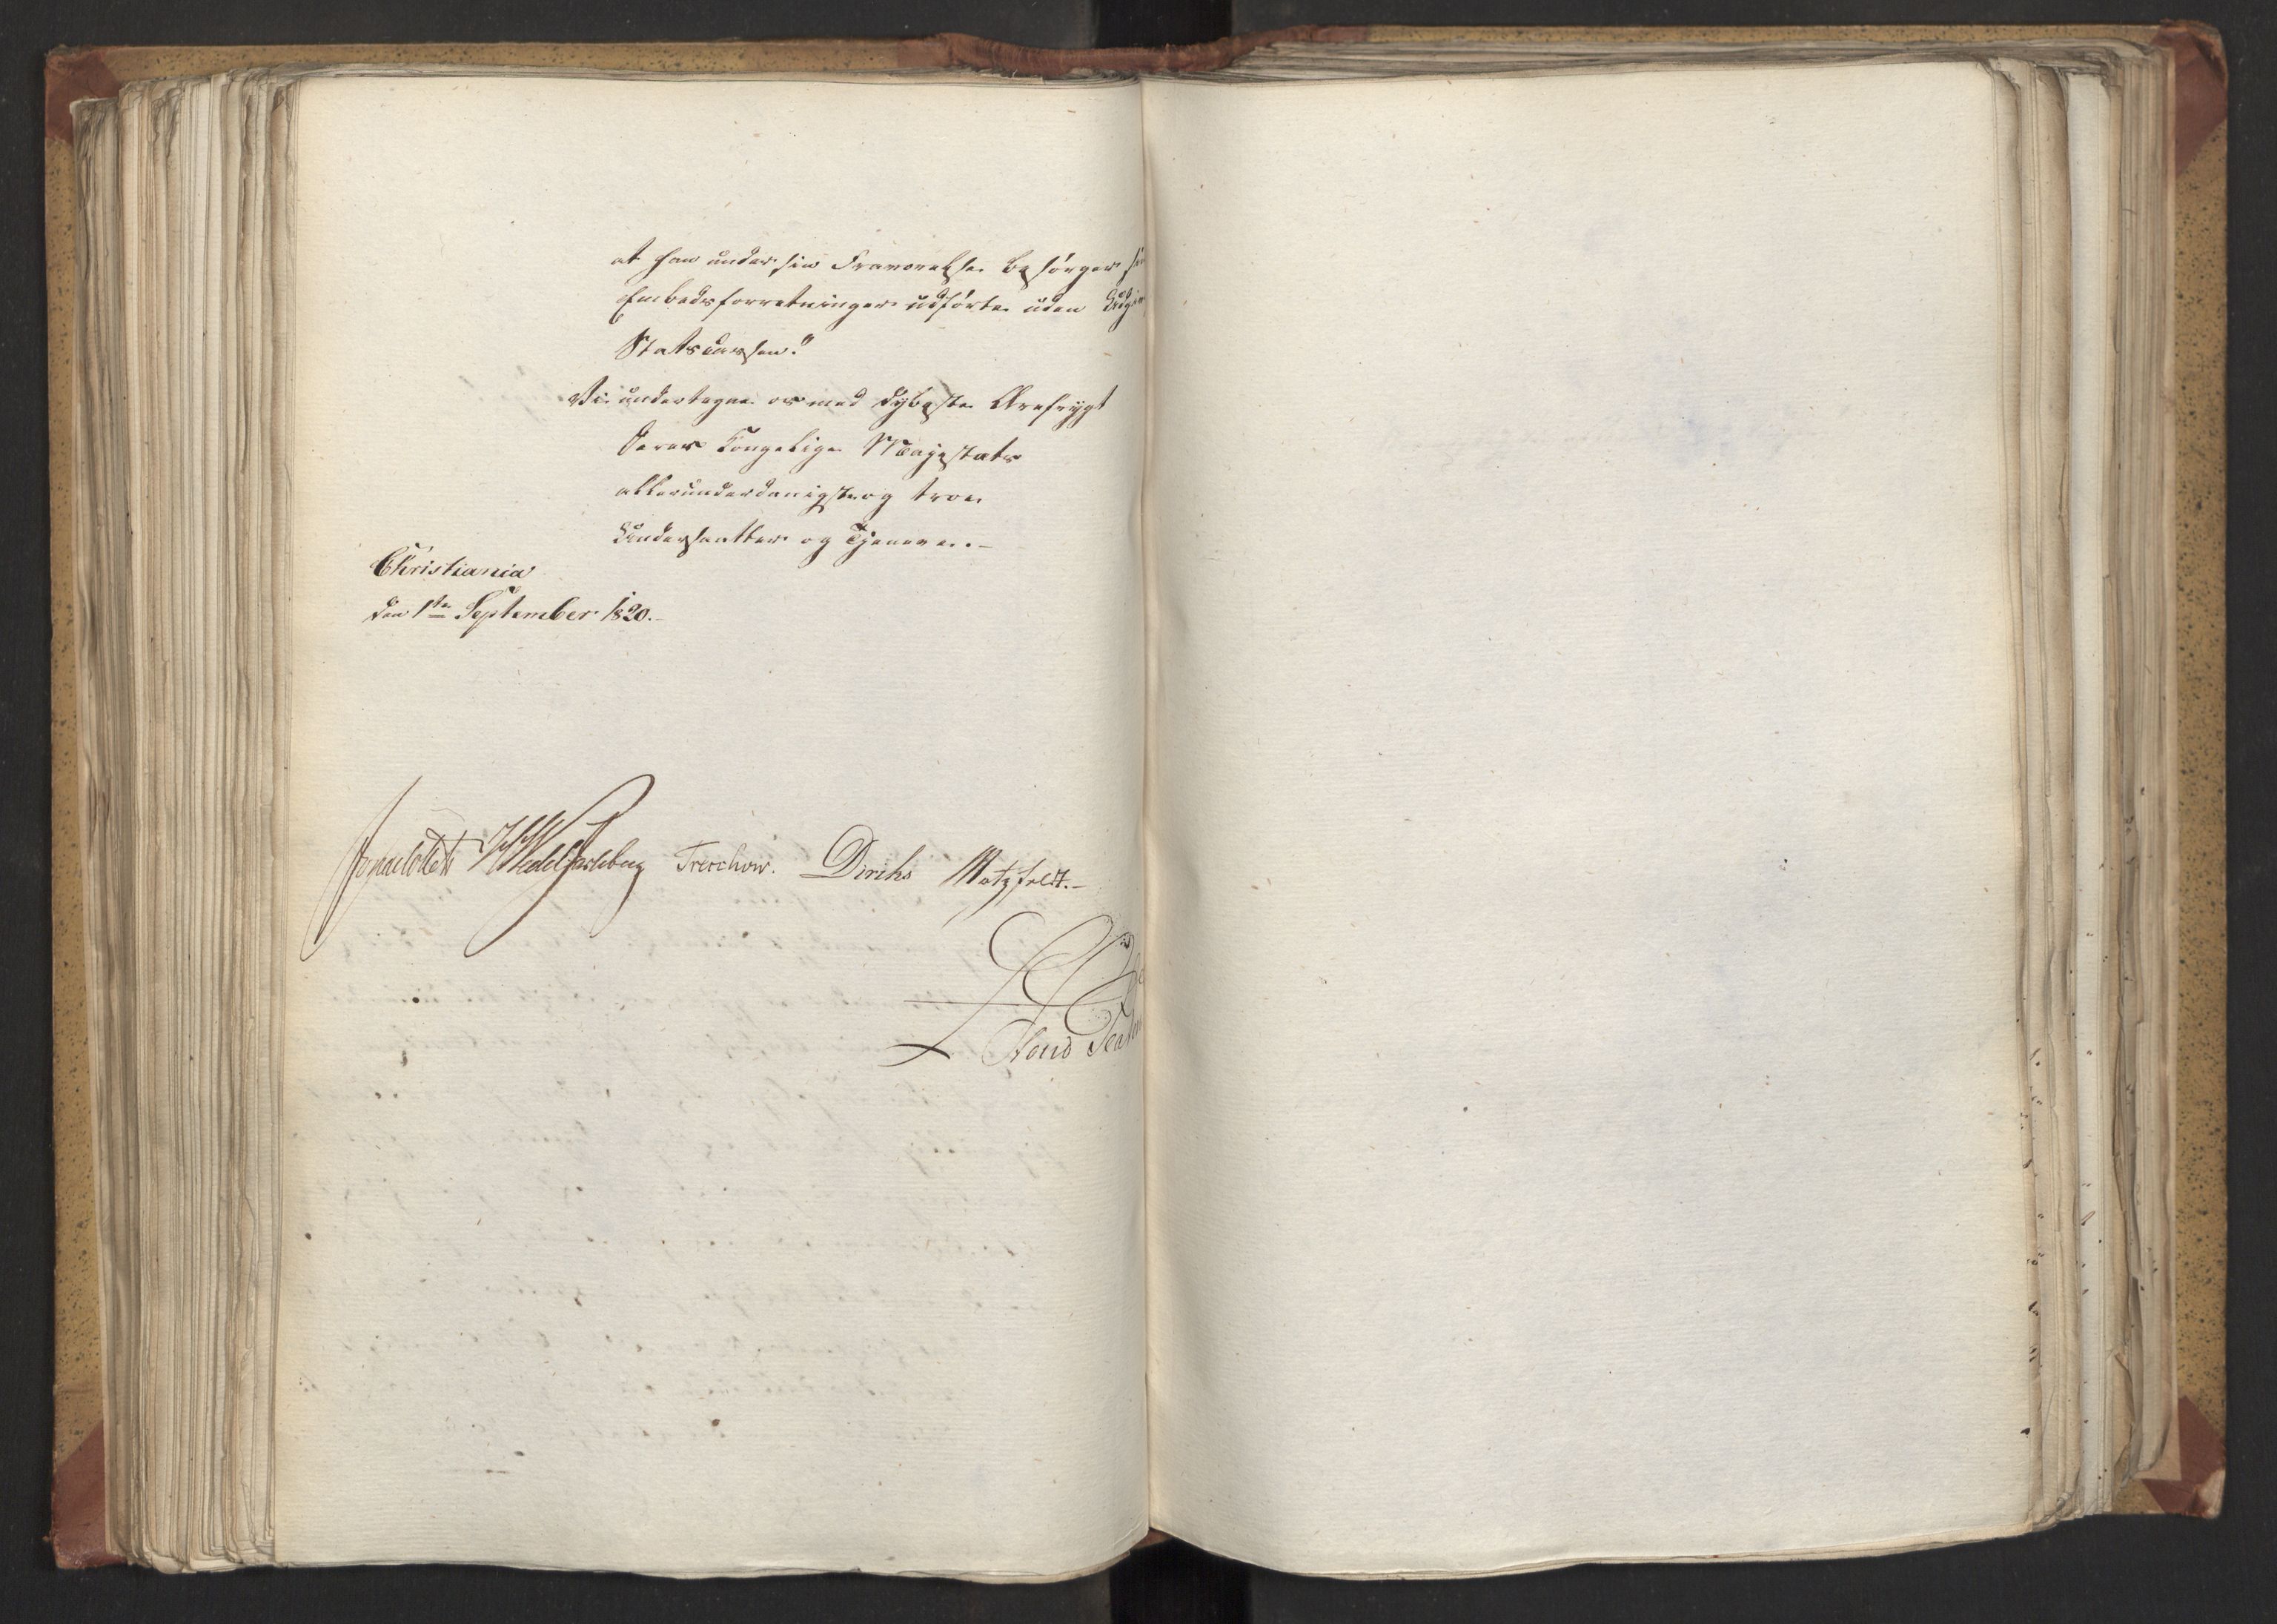 at han under sin Fraværelse besørger
Embedsforretninger udførte uden Udgift
Statscassen."
Vi undertegne os med dybeste Ærefrygt
Deres Kongelige Majestæts
allerunderdanigste og troe
Undersaatter og Tjenere.-
Christiania
den 1ste September 1820.-
Jonas Collett HWedelJarlsberg Treschow. Diriks Motzfeldt.-